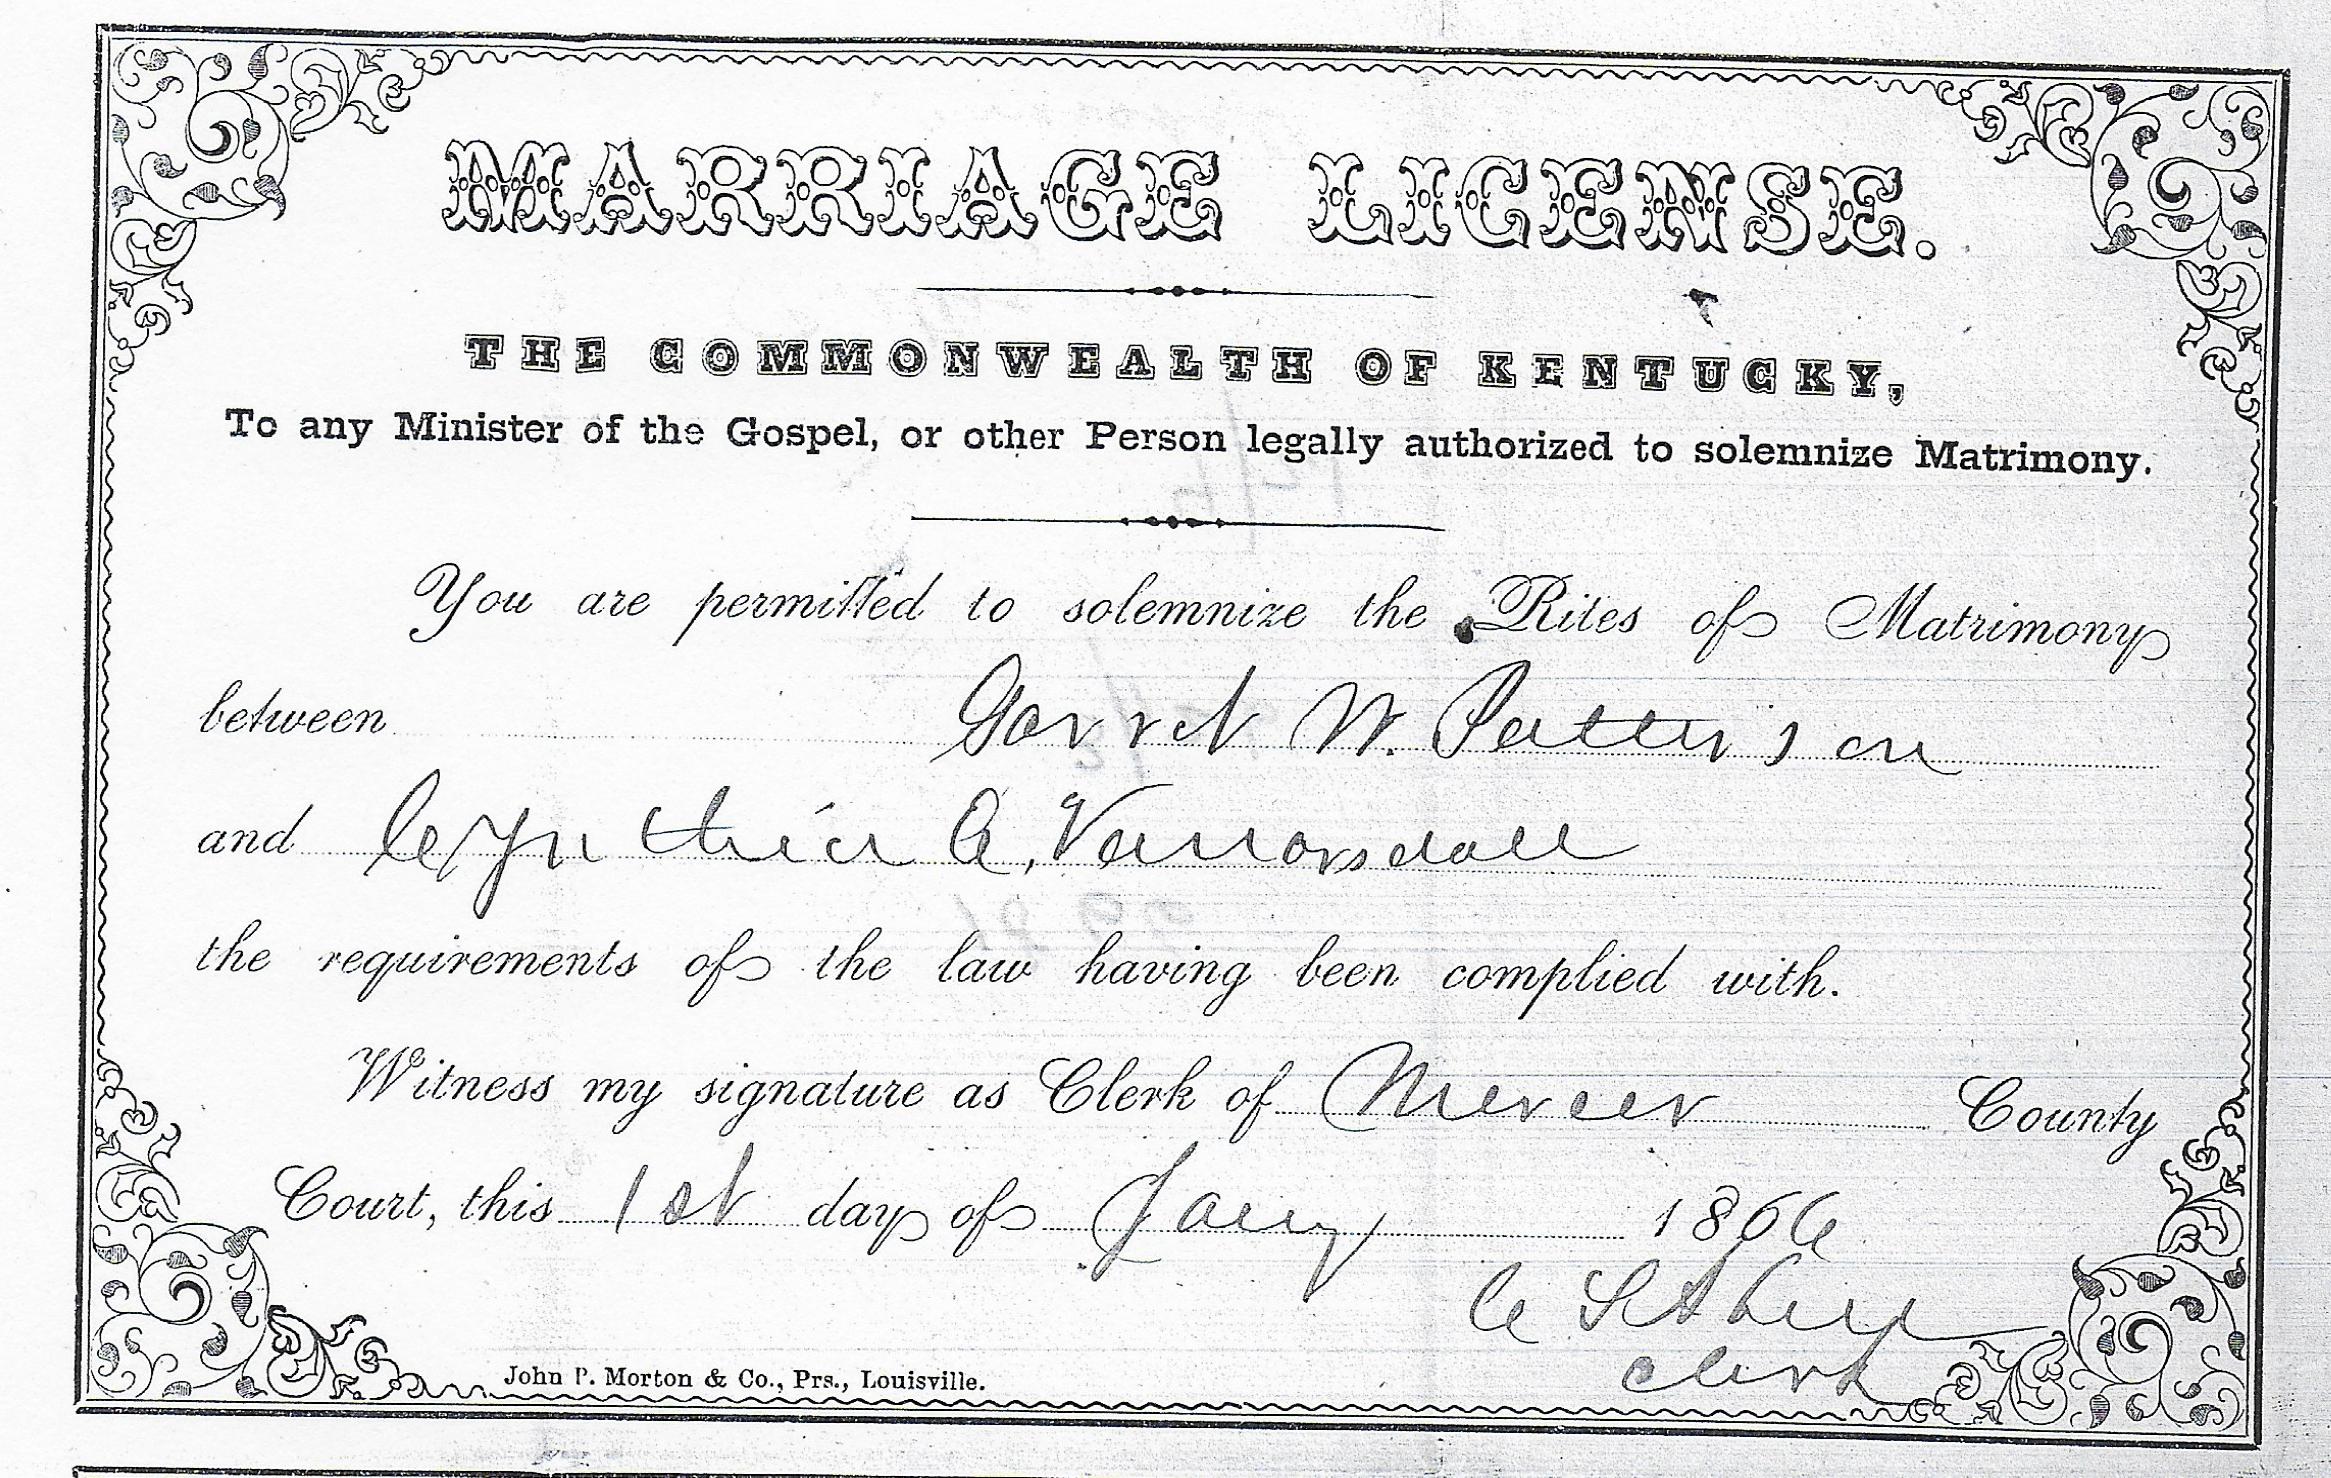 MARRIAGE LICENSE.
THE COMMONWEALTH OF KENTUCKY,
To any Minister of the Gospel, or other Person legally authorized to solemnize Matrimony.
You are permitted to solemnize the Rites of Matrimony
between Garret W. Patterson
and Cynthia A. Vanarsdall
the requirements of the law having been complied with.
Witness my signature as Clerk of Mercer County
Court, this 1st day of Jany 1866
Clerk
John P. Morton & Co., Prs., Louisville.